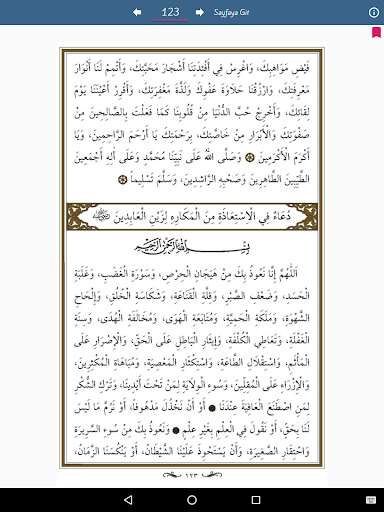 123
Sayfaya Git
فَيْضَ مَوَاهِبِكَ، وَاغْرِسْ فِي أَفْئِدَتِنَا أَشْجَارَ مَحَبَّتِكَ، وَأَتْمِمْ لَنَا أَنْوَارَ
مَعْرِفَتِكَ، وَارْزُقْنَا حَلَاوَةَ عَفْوِكَ وَلَذَّةَ مَغْفِرَتِكَ، وَأَقْرِرْ أَعْيُنَنَا يَوْمَ
لِقَائِكَ، وَأَخْرِجْ حُبَّ الدُّنْيَا مِنْ قُلُوبِنَا كَمَا فَعَلْتَ بِالصَّالِحِينَ مِنْ
صَفْوَتِكَ وَالْأَبْرَارِ مِنْ خَاصَّتِكَ، بِرَحْمَتِكَ يَا أَرْحَمَ الرَّاحِمِينَ، وَيَا
أَكْرَمَ الْأَكْرَمِينَ وَصَلَّى اللهُ عَلَى نَبِيِّنَا مُحَمَّدٍ وَعَلَى أٰلِهِ أَجْمَعِينَ
الطَّيِّبِينَ الطَّاهِرِينَ وَصَحْبِهِ الرَّاشِدِينَ، وَسَلَّمَ تَسْلِيماً
دُعَاءٌ فِي الْاِسْتِعَاذَةِ مِنَ الْمَكَارِهِ لِزَيْنِ الْعَابِدِينَ
بِسْمِ اللهِ الرَّحْمٰنِ الرَّحِيمِ
اَللّٰهُمَّ إِنَّا نَعُوذُ بِكَ مِنْ هَيَجَانِ الْحِرْصِ، وَسَوْرَةِ الْغَضَبِ، وَغَلَبَةِ
الْحَسَدِ، وَضَعْفِ الصَّبْرِ، وَقِلَّةِ الْقَنَاعَةِ، وَشَكَاسَةِ الْخُلُقِ، وَإِلْحَاحِ
الشَّهْوَةِ، وَمَلَكَةِ الْحَمِيَّةِ، وَمُتَابَعَةِ الْهَوَى، وَمُخَالَفَةِ الْهُدَى، وَسِنَةِ
الْغَفْلَةِ، وَتَعَاطِي الْكُلْفَةِ، وَإِيثَارِ الْبَاطِلِ عَلَى الْحَقِّ، وَالْإِصْرَارِ عَلَى
الْمَأْثَمِ، وَاسْتِقْلَالِ الطَّاعَةِ، وَاسْتِكْثَارِ الْمَعْصِيَةِ، وَمُبَاهَاةِ الْمُكْثِرِينَ،
وَالْإِزْرَاءِ عَلَى الْمُقِلِّينَ، وَسُوءِ الْوِلَايَةِ لِمَنْ تَحْتَ أَيْدِينَا، وَتَرْكِ الشُّكْرِ
لِمَنِ اصْطَنَعَ الْعَافِيَةَ عِنْدَنَا أَوْ أَنْ نَخْذُلَ مَلْهُوفاً، أَوْ نَرُمَّ مَا لَيْسَ
لَنَا بِحَقٍّ، أَوْ نَقُولَ فِي الْعِلْمِ بِغَيْرِ عِلْمٍ وَنَعُوذُ بِكَ مِنْ سُوءِ السَّرِيرَةِ
وَاحْتِقَارِ الصَّغِيرَةِ، وَأَنْ يَسْتَحْوِذَ عَلَيْنَا الشَّيْطَانُ، أَوْ يَنْكُبَنَا الزَّمَانُ،
١٢٣